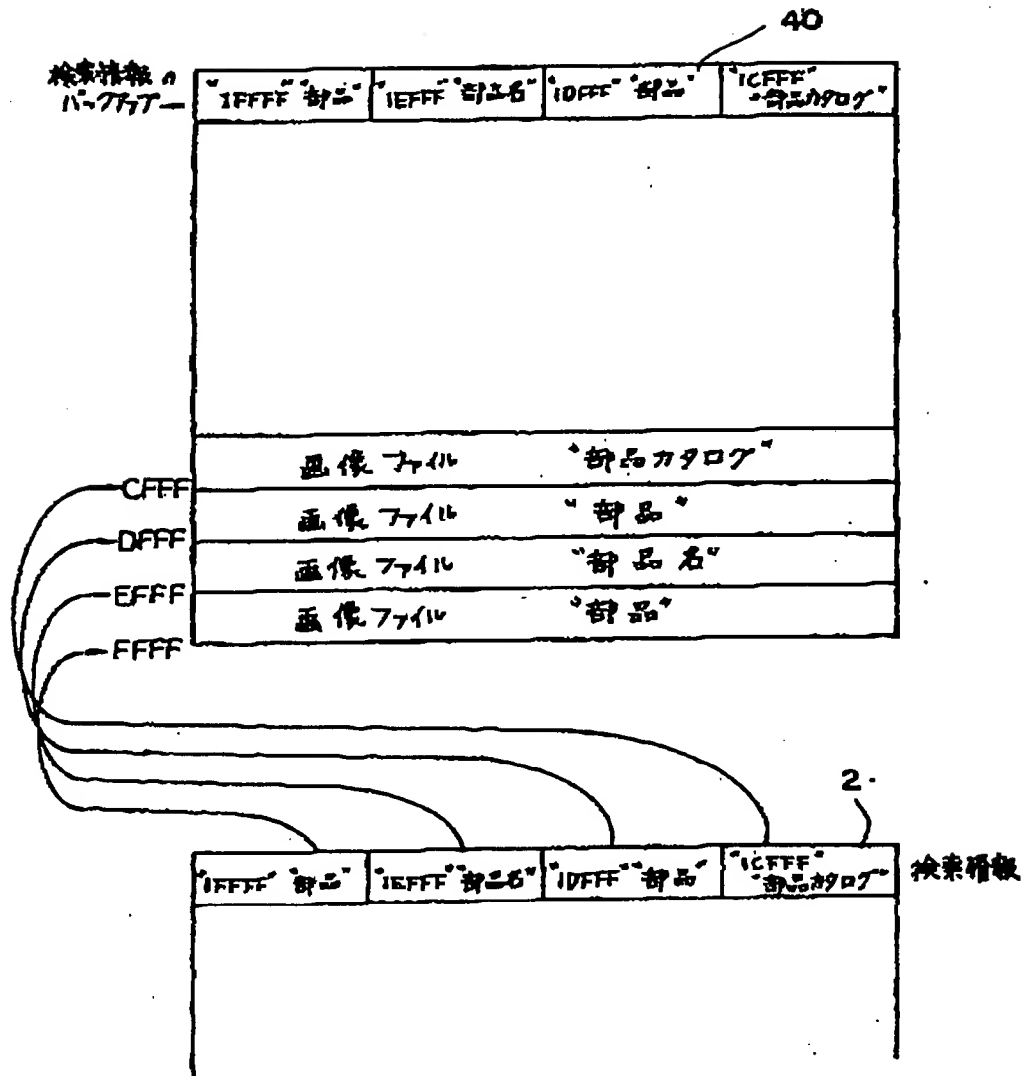 40
検索情報の
バックアップ
"1FFFF" "部品" "1EFFF" "部品名" "1DFFF" "部品" "1CFFF"
"部品カタログ"
画像ファイル "部品カタログ"
CFFF
画像ファイル "部品"
DFFF
画像ファイル "部品名"
EFFF
画像ファイル "部品"
FFFF
2
"1FFFF" "部品" "1EFFF" "部品名" "1DFFF" "部品" "1CFFF"
"部品カタログ"
検索情報